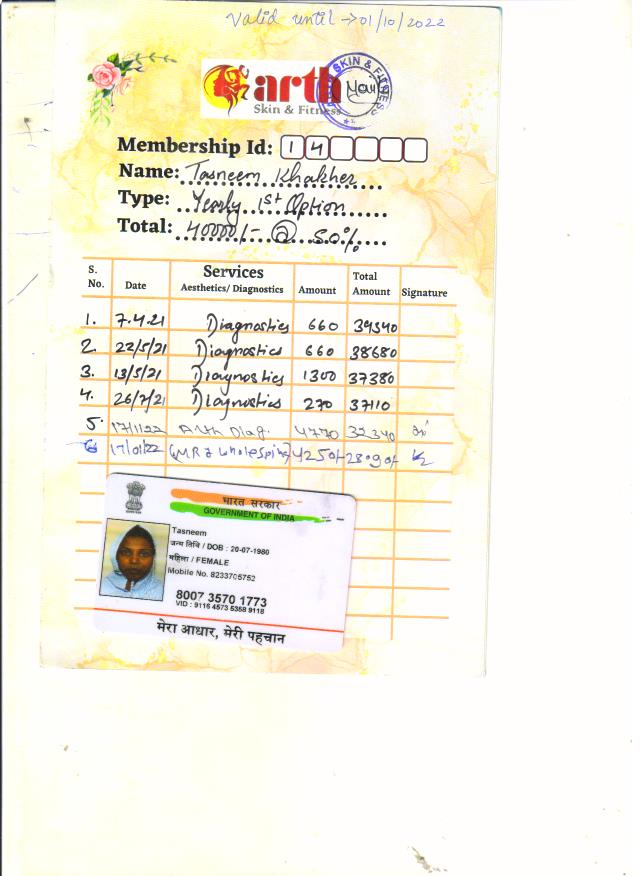 Valid until → 01/10/2022
arth
Skin & Fitness
SKIN & FITNESS
Membership Id: 1 4
Name: Tasneem Khakher
Type: Yearly 1st Option
Total: 40000/- @ 50%
S. No. Date Services Aesthetics/ Diagnostics Amount Total Amount Signature
1. 7.4.21 Diagnostics 660 39340
2. 22/5/21 Diagnostics 660 38680
3. 13/5/21 Diagnostics 1300 37380
4. 26/7/21 Diagnostics 270 37110
5. 17/1/22 Arth Diag. 4770 32340
6 17/01/22 (MRI whole Spine) 4250/- 28090/-
भारत सरकार
GOVERNMENT OF INDIA
Tasneem
जन्म तिथि / DOB : 20-07-1980
महिला / FEMALE
Mobile No. 8233705752
8007 3570 1773
VID : 9116 4573 5358 9118
मेरा आधार, मेरी पहचान